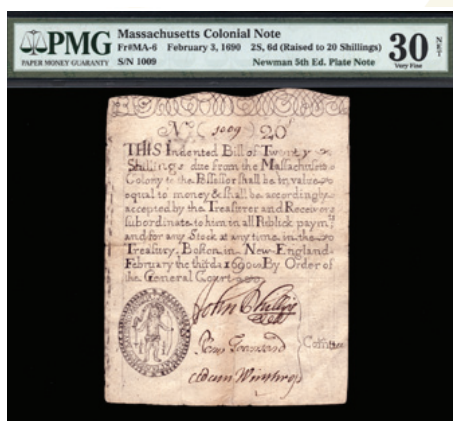 PMG
PAPER MONEY GUARANTY
Massachusetts Colonial Note
Fr#MA-6 February 3, 1690 2S, 6d (Raised to 20 Shillings)
S/N 1009 Newman 5th Ed. Plate Note
30 NET
Very Fine
No ( 1009 ) 20s
THIS Indented Bill of Twenty
Shillings due from the Massachusets
Colony to the Possessor shall be in value
equal to money & shall be accordingly
accepted by the Treasurer and Receivers
subordinate to him in all Publick paymts
and for any Stock at any time in the
Treasury. Boston in New-England
February the third 1690 By Order of
the General Court
John Phillips
Penn Townsend
Adam Winthrop
Comittee